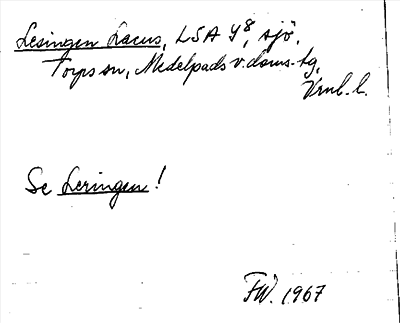 Lesingen Lacus, LSA Y8, sjö.
Torps sn, Medelpads v. doms-tg,
Vrnl. l.
Se Leringen!
FW. 1967